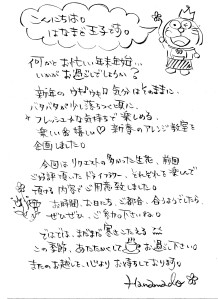 こんにちは。
はなきと王子です。
何かとお忙しい年末年始…
いかがお過ごしでしょうか?
新年の ウキウキな 気分は そのままに、
バタバタが 少し落ちつく頃に、
フレッシュな 気持ちで 楽しめる
楽しい 企画 新春の アレンジ教室を
企画しました。
今回は リクエストの 多かった 生花、前回
ご好評頂した ドライフラワー、それぞれを 楽しんで
頂ける内容で ご用意致しました。
お時間、お日にち、ご都合、合うようでしたら、
ぜひぜひ、ご参加下さいね。
そばでは、まだまだ 寒さこたえる
この季節、あたたかくして お過し下さい。
またのお越しを、心より お待ちしております。
Hanando